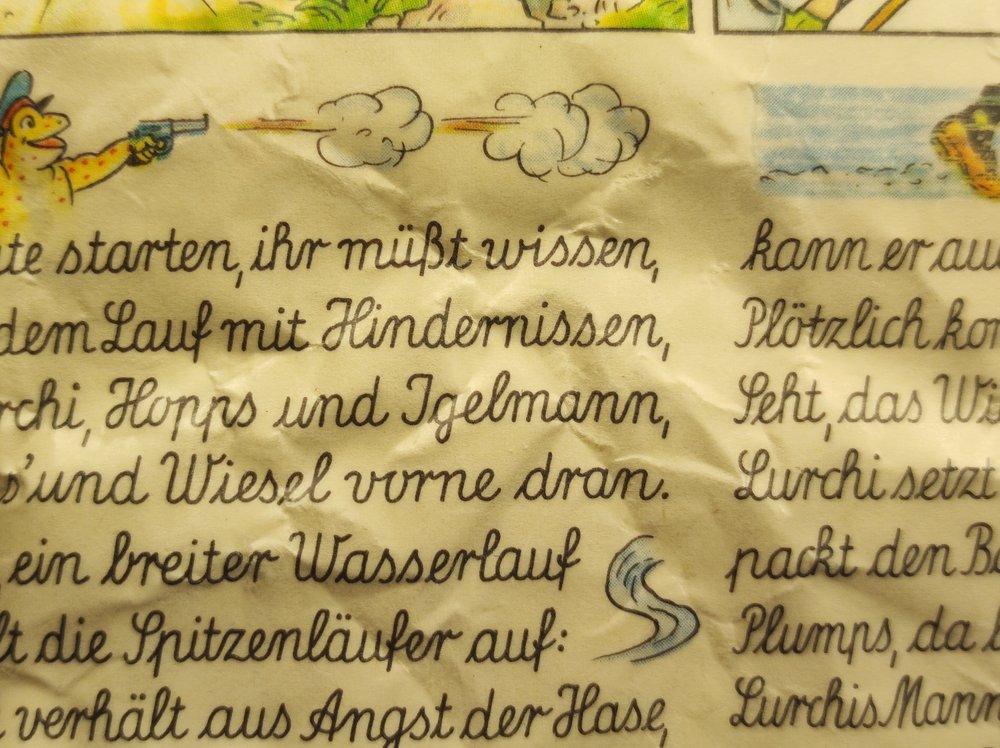 starten, ihr müßt wissen,
dem Lauf mit Hindernissen,
Hopps und Igelmann,
und Wiesel vorne dran.
ein breiter Wasserlauf
die Spitzenläufer auf:
verhält aus Angst der Hase,
kann er
Plötzlich
Seht, das
Lurchi setzt
packt den
Plumps, da
Lurchis